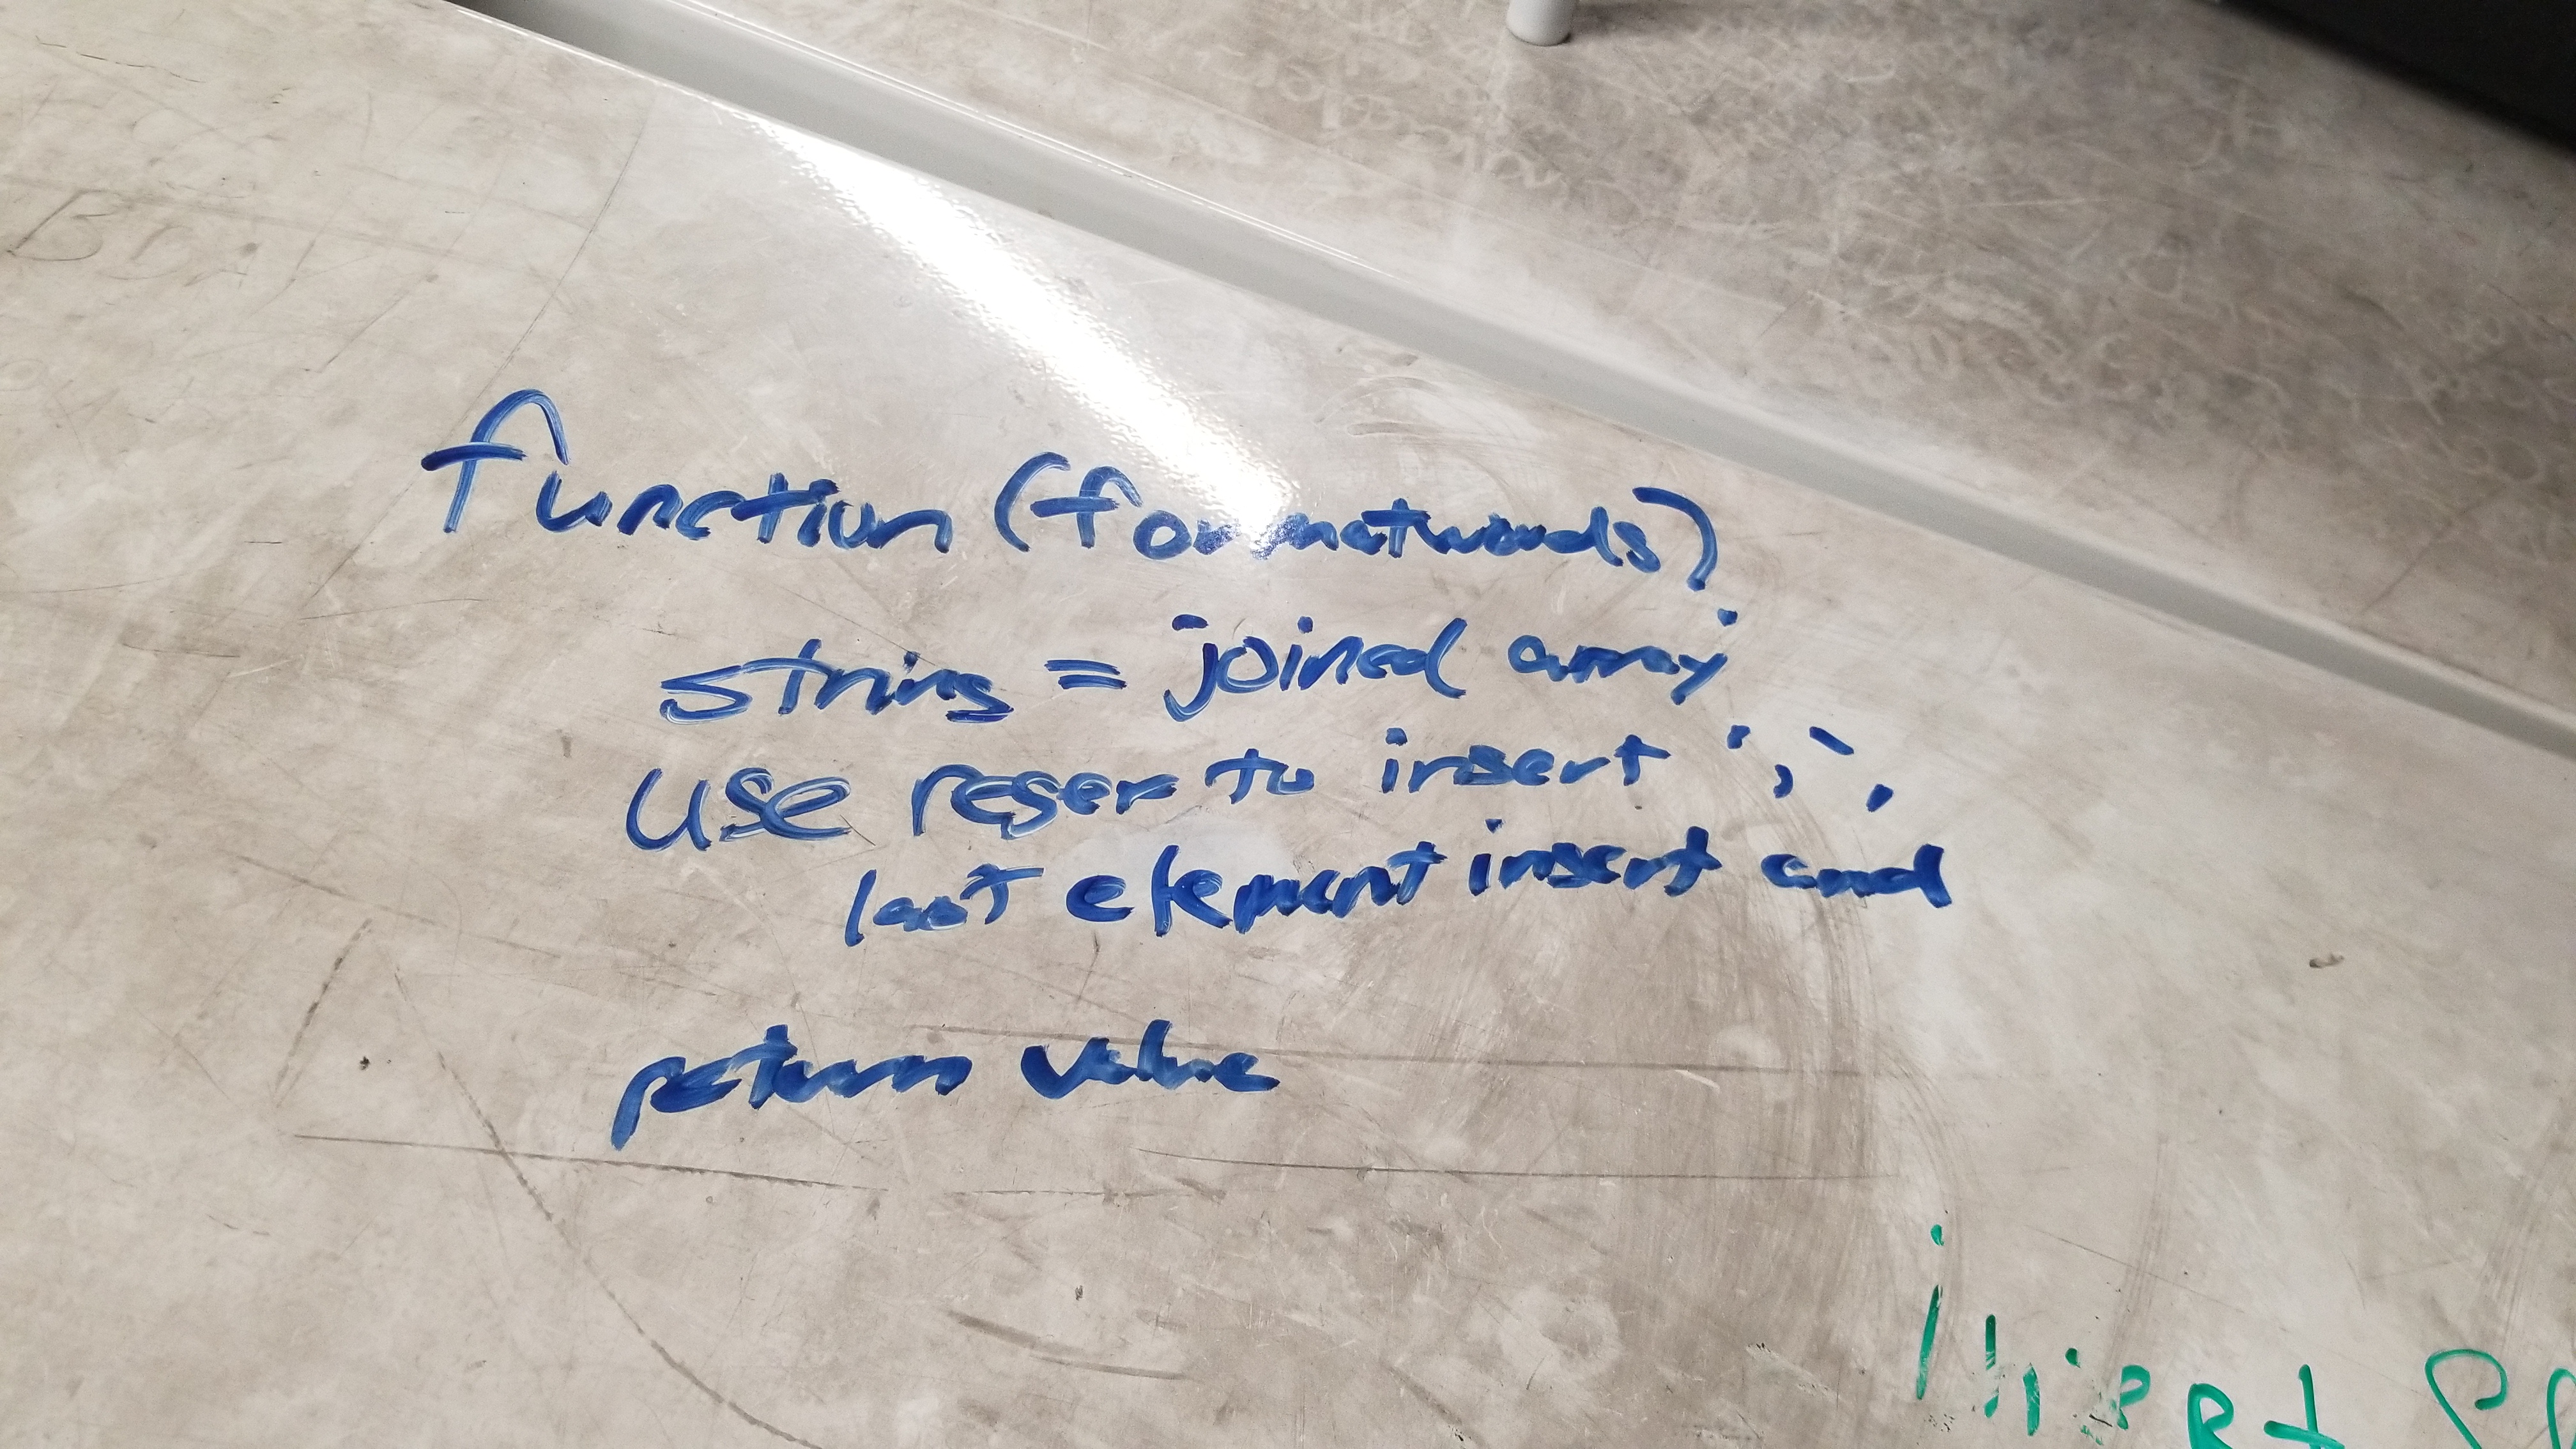 function (formatwords)
string = joined array
use regex to insert ','
last element insert and
return value
insert